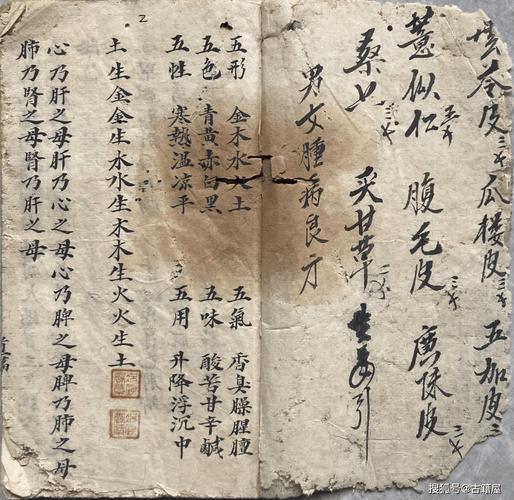 苓皮 三 瓜楼皮 三 五加皮 三
薏似仁 五 腹毛皮 三 廣陳皮 三
桑 三 炙甘草 引
男女腫病良方
五形 金木水火土 五氣 香臭臊腥膻
五色 青黄赤白黑 五味 酸苦甘辛鹹
五性 寒熱溫凉平 五用 升降浮沉中
土生金金生水水生木木生火火生土
心乃肝之母肝乃心之母心乃脾之母脾乃肺之母
肺乃腎之母腎乃肝之母
2
搜狐号@古籍屋